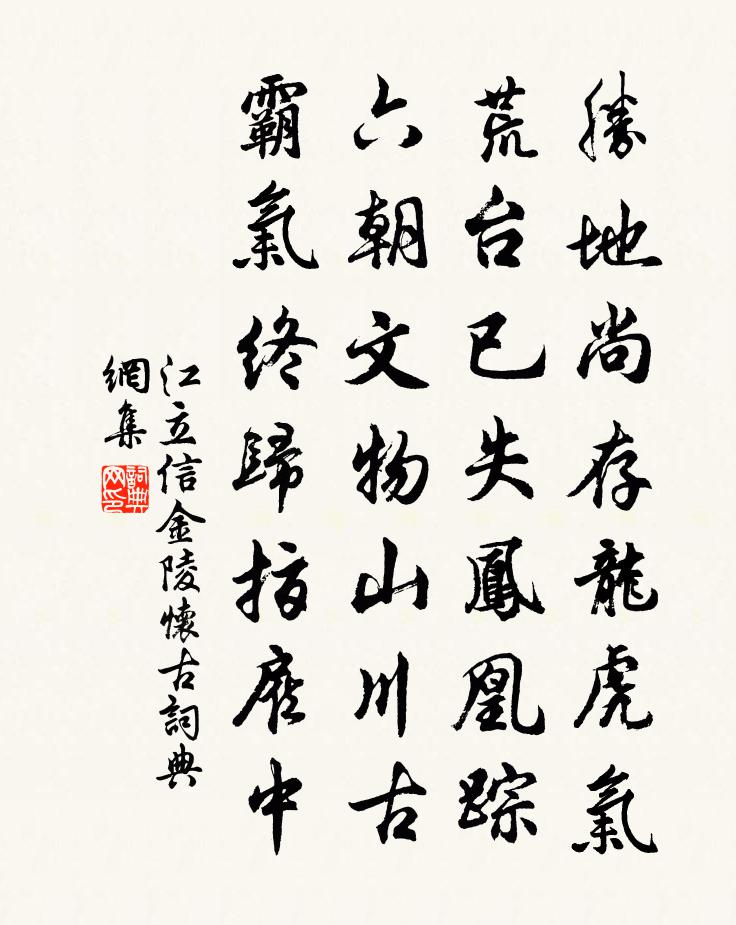 勝地尚存龍虎氣
荒台已失鳳凰踪
六朝文物山川古
霸氣終歸指
中
江立信金陵懷古詞典
網集
詞典
网印